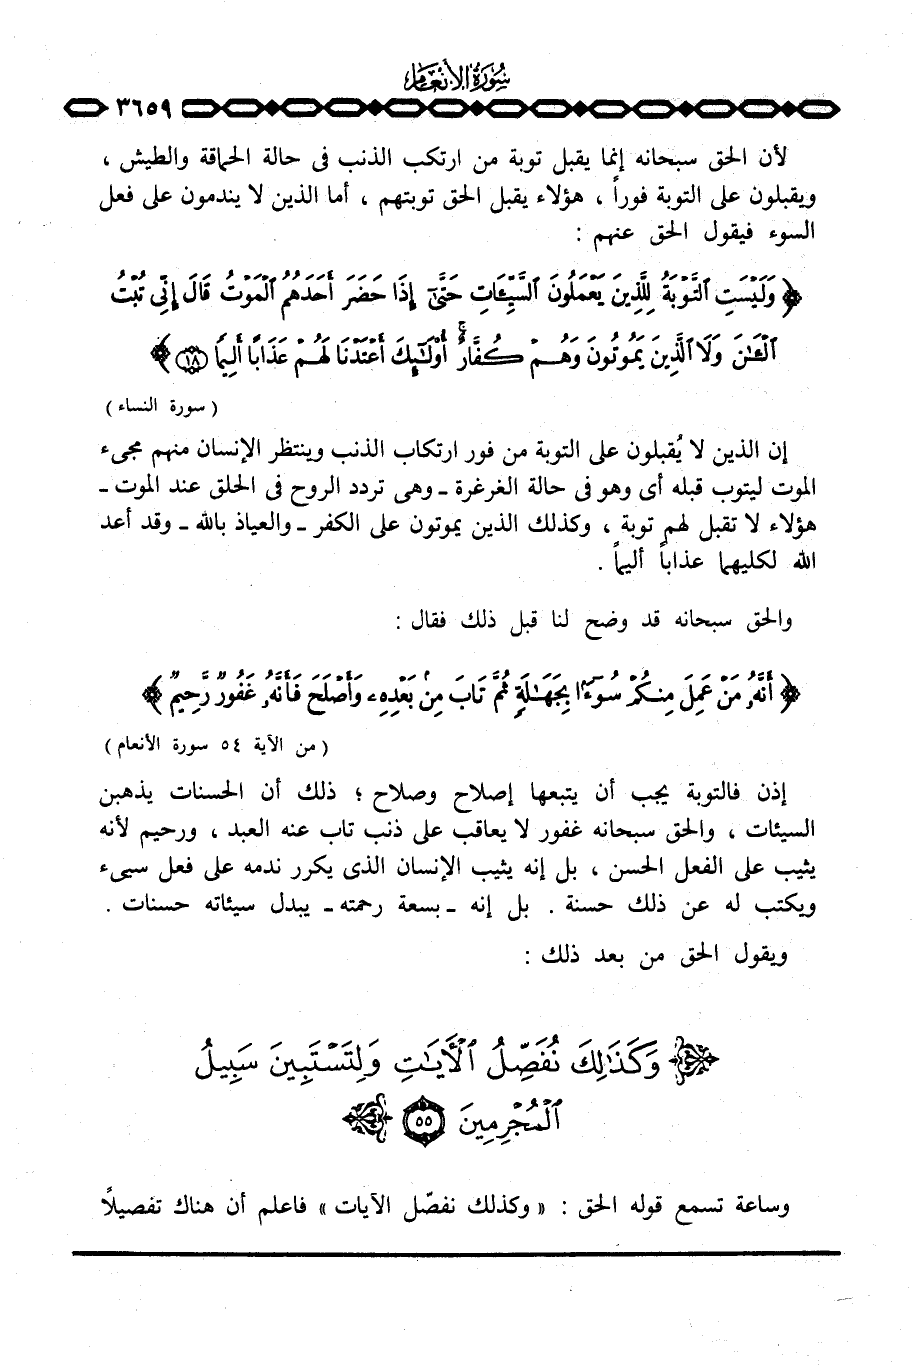 سورة الأنعام
٣٦٥٩
لأن الحق سبحانه إنما يقبل توبة من ارتكب الذنب فى حالة الحماقة والطيش ،
ويقبلون على التوبة فوراً ، هؤلاء يقبل الحق توبتهم ، أما الذين لا يندمون على فعل
السوء فيقول الحق عنهم :
﴿ وَلَيْسَتِ ٱلتَّوْبَةُ لِلَّذِينَ يَعْمَلُونَ ٱلسَّيِّـَٔاتِ حَتَّىٰٓ إِذَا حَضَرَ أَحَدَهُمُ ٱلْمَوْتُ قَالَ إِنِّى تُبْتُ
ٱلْـَٰٔنَ وَلَا ٱلَّذِينَ يَمُوتُونَ وَهُمْ كُفَّارٌ ۚ أُوْلَـٰٓئِكَ أَعْتَدْنَا لَهُمْ عَذَابًا أَلِيمًا ﴿١٨﴾ ﴾
( سورة النساء )
إن الذين لا يُقبلون على التوبة من فور ارتكاب الذنب وينتظر الإنسان منهم مجىء
الموت ليتوب قبله أى وهو فى حالة الغرغرة ـ وهى تردد الروح فى الحلق عند الموت ـ
هؤلاء لا تقبل لهم توبة ، وكذلك الذين يموتون على الكفر ـ والعياذ بالله ـ وقد أعد
الله لكليهما عذاباً أليماً .
والحق سبحانه قد وضح لنا قبل ذلك فقال :
﴿ أَنَّهُۥ مَنْ عَمِلَ مِنكُمْ سُوٓءًۢا بِجَهَـٰلَةٍ ثُمَّ تَابَ مِنۢ بَعْدِهِۦ وَأَصْلَحَ فَأَنَّهُۥ غَفُورٌ رَّحِيمٌ ﴾
( من الآية ٥٤ سورة الأنعام )
إذن فالتوبة يجب أن يتبعها إصلاح وصلاح ؛ ذلك أن الحسنات يذهبن
السيئات ، والحق سبحانه غفور لا يعاقب على ذنب تاب عنه العبد ، ورحيم لأنه
يثيب على الفعل الحسن ، بل إنه يثيب الإنسان الذى يكرر ندمه على فعل سيىء
ويكتب له عن ذلك حسنة . بل إنه ـ بسعة رحمته ـ يبدل سيئاته حسنات .
ويقول الحق من بعد ذلك :
﴿ وَكَذَٰلِكَ نُفَصِّلُ ٱلْـَٔايَـٰتِ وَلِتَسْتَبِينَ سَبِيلُ
ٱلْمُجْرِمِينَ ﴿٥٥﴾ ﴾
وساعة تسمع قوله الحق : « وكذلك نفصّل الآيات » فاعلم أن هناك تفصيلاً